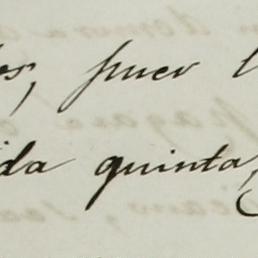 os, pues l
ida quinta,